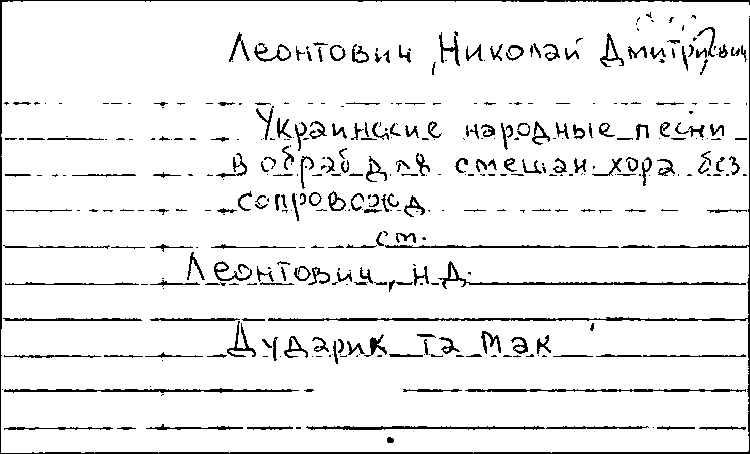 Леонтович, Николай Дмитриевич
Украинские народные песни
в обраб для смешан. хора без
сопровожд
см.
Леонтович, Н.Д.
Дударик та Мак